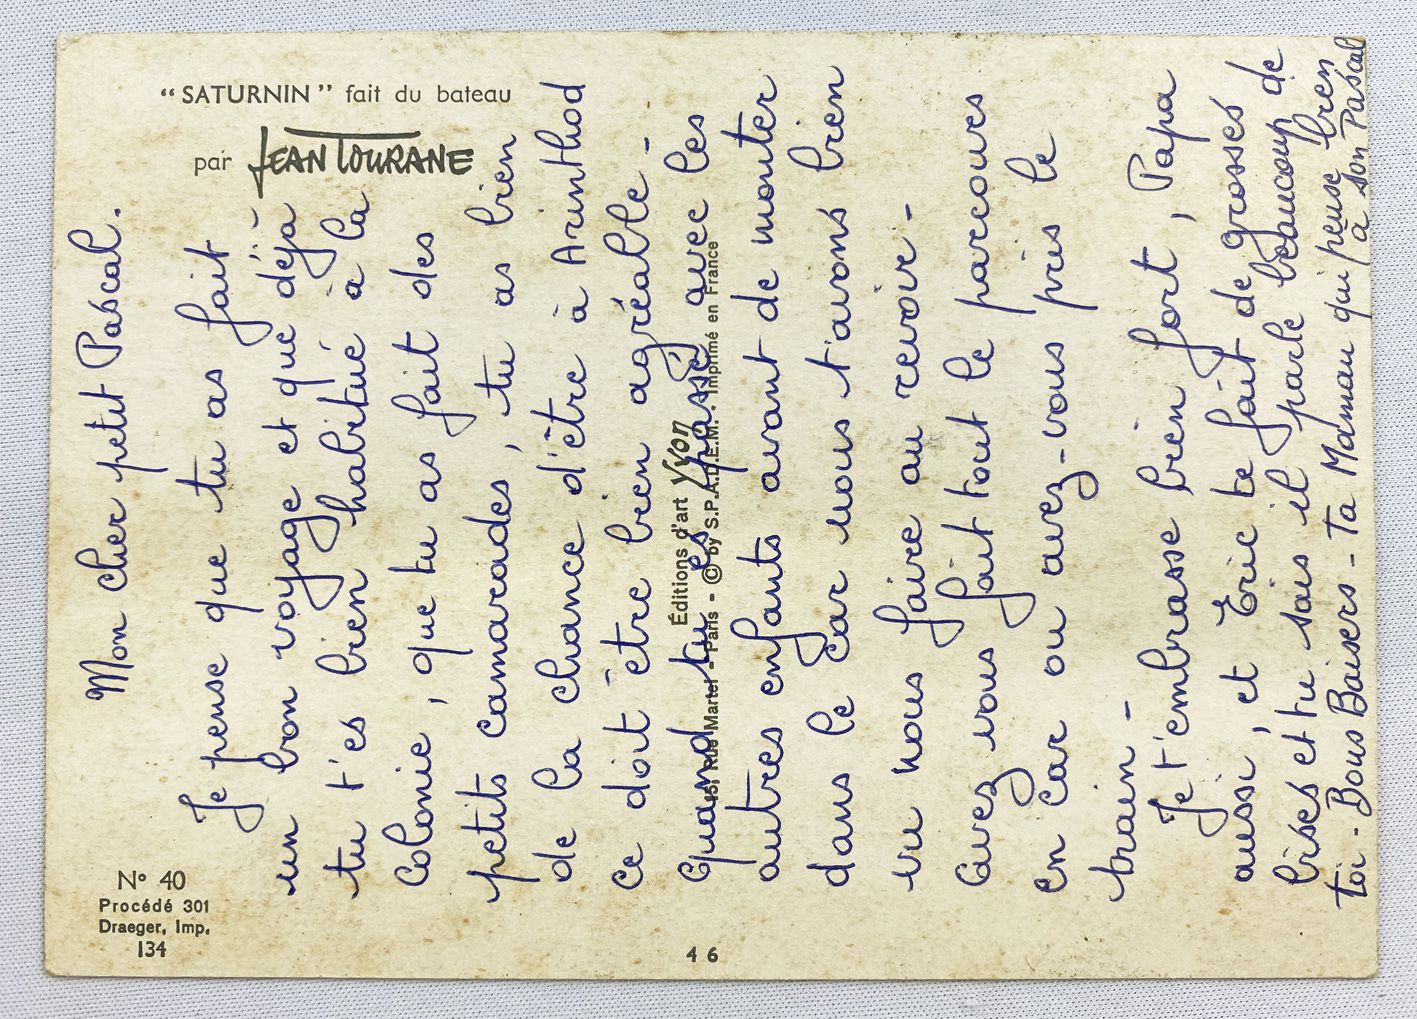 “SATURNIN” fait du bateau
par JEAN TOURANE
N° 40
Procédé 301
Draeger, Imp.
134
Éditions d'art Yvon
15, Rue Martel - Paris - © by S.P.A.D.E.M. - Imprimé en France
46
Mon cher petit Pascal.
Je pense que tu as fait
un bon voyage et que déjà
tu t'es bien habitué à la
colonie, que tu as fait des
petits camarades, tu as bien
de la chance d'être à Arinthod
ce doit être bien agréable -
Quand tu es passé avec les
autres enfants avant de monter
dans le car nous t'avons bien
vu nous faire au revoir -
Avez vous fait tout le parcours
en car ou avez-vous pris le
train -
Je t'embrasse bien fort, Papa
aussi, et Eric te fait de grosses
bises et tu sais il parle beaucoup de
toi - Bons Baisers - Ta Maman qui pense bien
à son Pascal